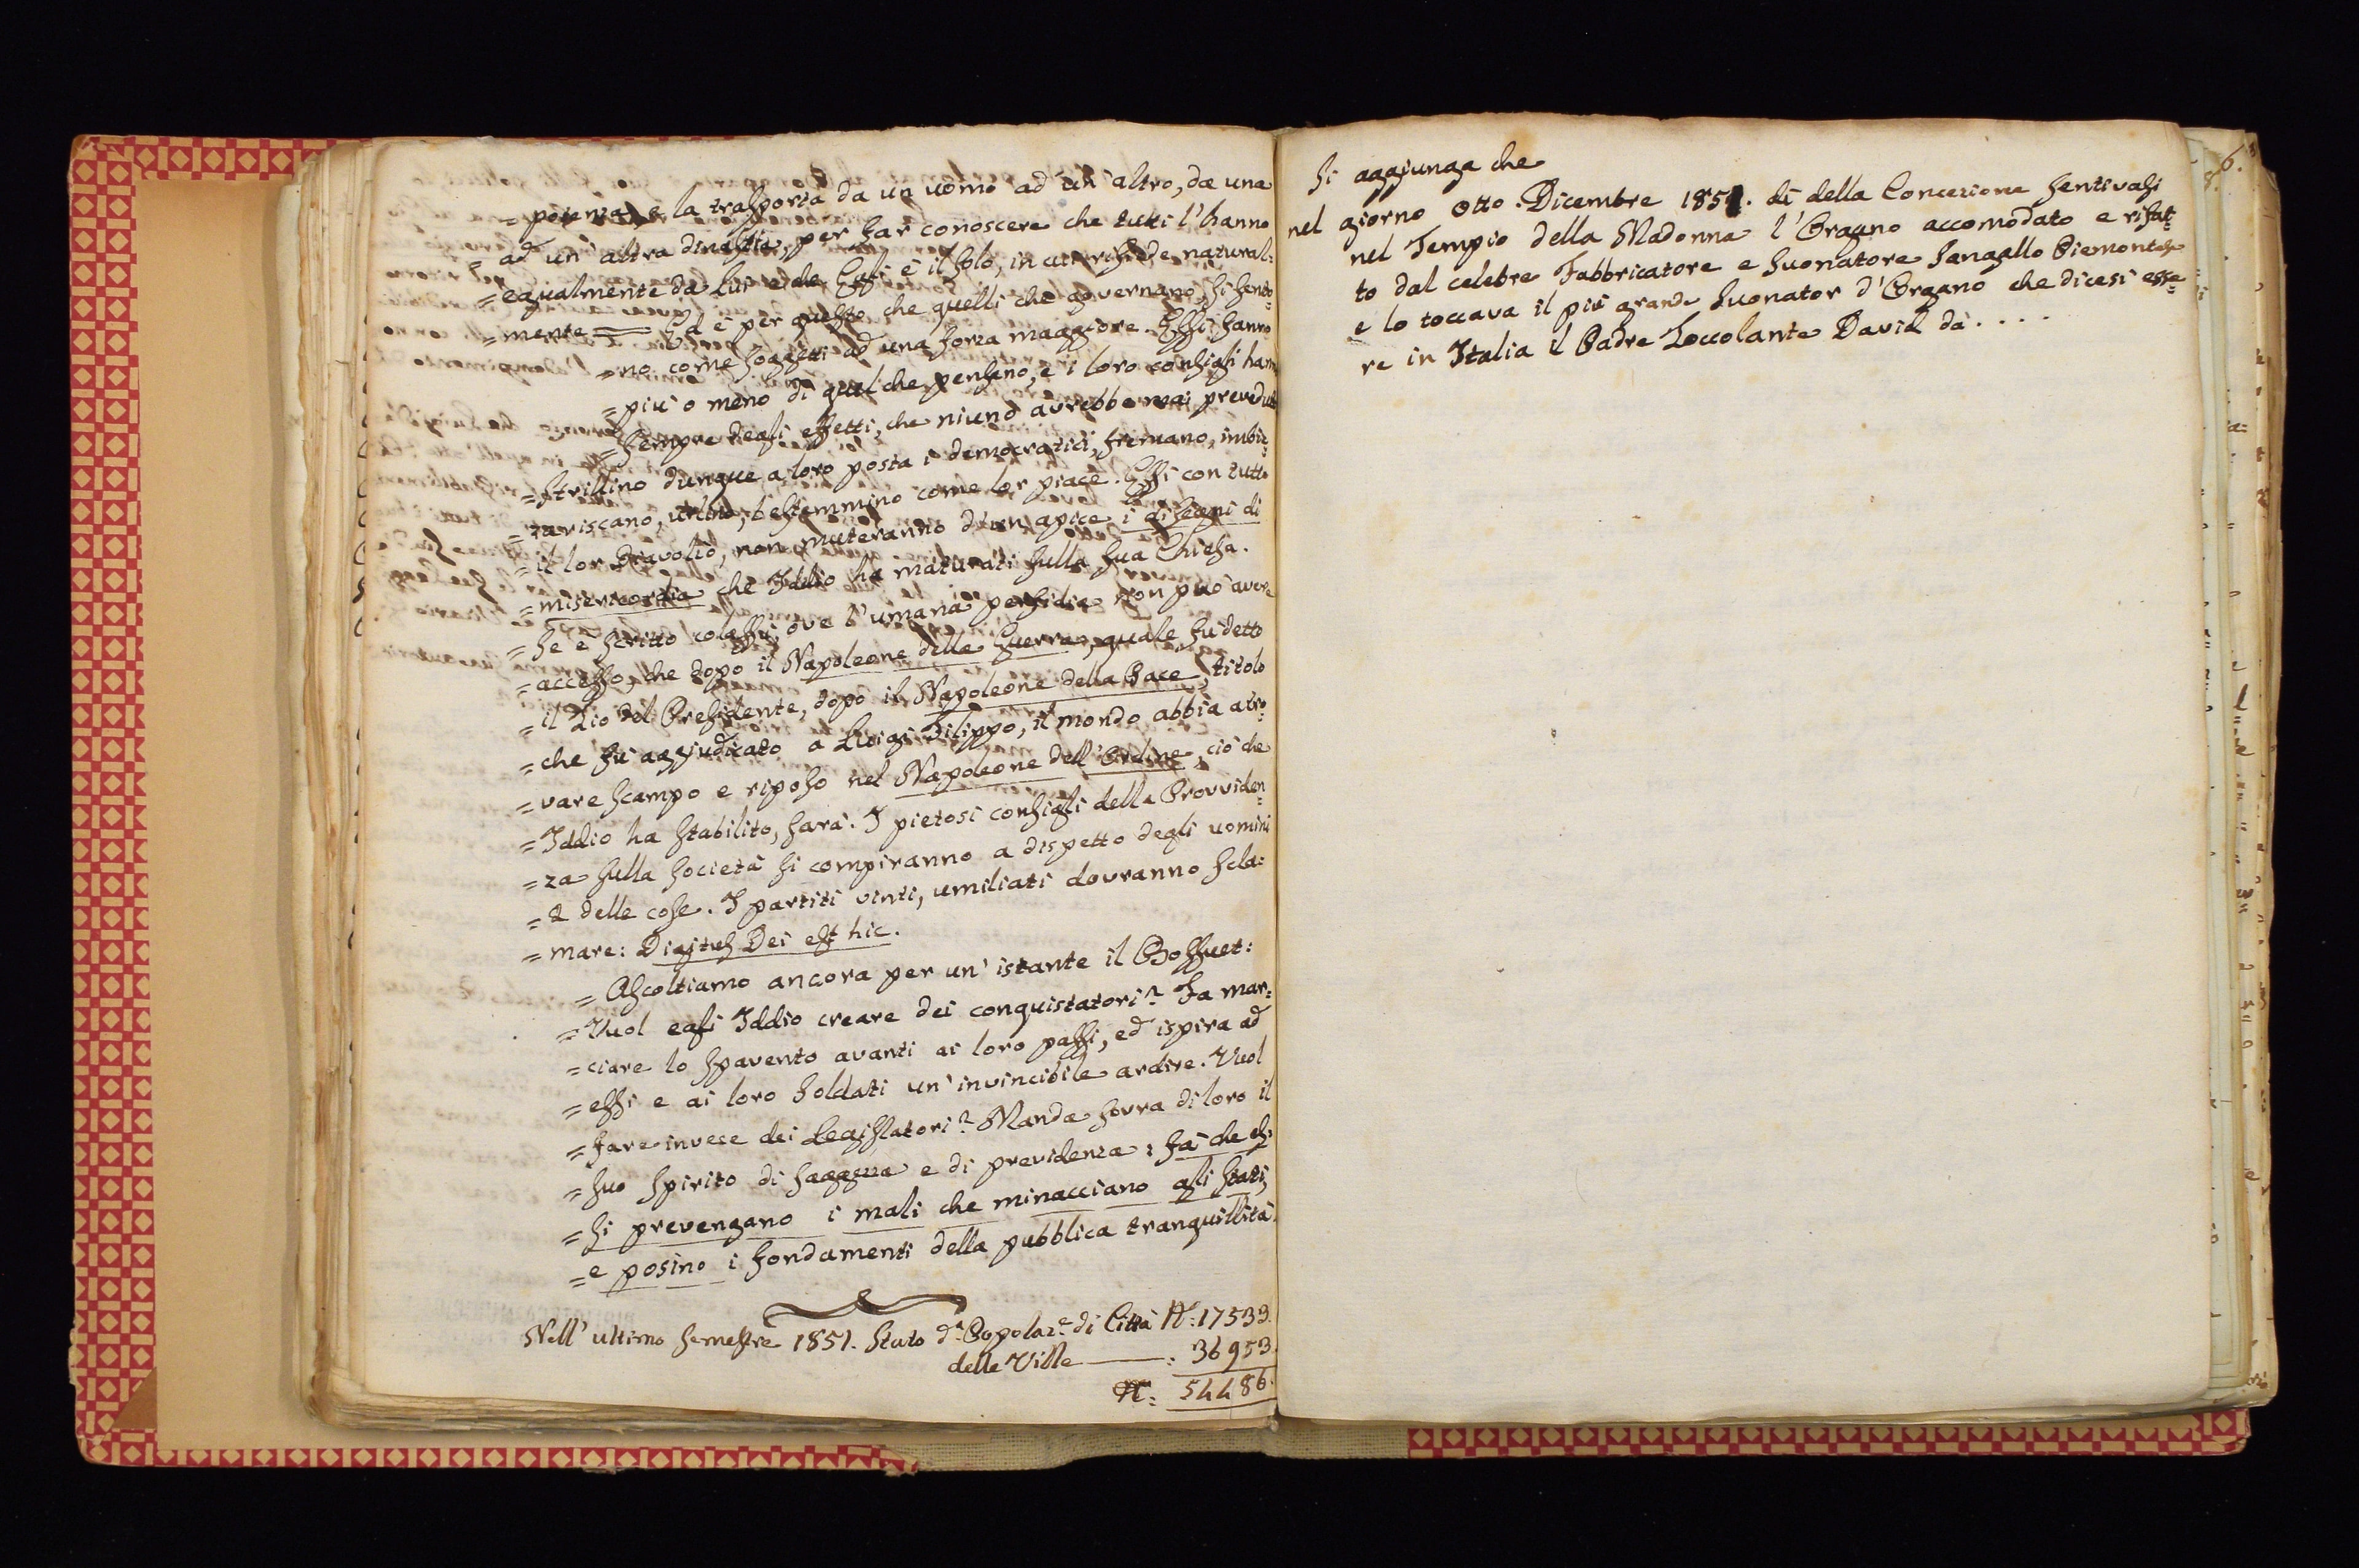 = potenza, e la trasporta da un uomo ad un' altro, da una
= ad un' altra dinastia, per far conoscere che tutti l'hanno
= egualmente da Lui e che Egli è il solo, in cui risiede natural=
= mente = Ed è per questo che quelli che governano, si sento=
= no come soggetti ad una forza maggiore. Essi fanno
= più o meno di quel che pensano, e i loro consigli hanno
= sempre degli effetti, che niuno avrebbe mai preveduto
= Strillino dunque a loro posta i democratici, fremano, imbiz=
= zariscano, urlino, bestemmino come lor piace. Essi con tutto
= il lor diavolìo, non muteranno d'un apice i disegni di
= misericordia che Iddio ha maturati sulla sua Chiesa.
= Se è scritto colassù, ove l'umana perfidia non può avere
= accesso, che dopo il Napoleone della Guerra, quale fu detto
= il Zio del Presidente, dopo il Napoleone della Pace, titolo
= che fù aggiudicato a Luigi Filippo, il mondo abbia a tro=
= vare scampo e riposo nel Napoleone dell' Ordine, ciò che
= Iddio ha stabilito, sarà. I pietosi consigli della Provviden=
= za sulla società si compiranno a dispetto degli uomini
= e delle cose. I partiti vinti, umiliati dovranno scla=
= mare: Digitus Dei est hic.
= Ascoltiamo ancora per un' istante il Bossuet:
= Vuol egli Iddio creare dei conquistatori? Fa mar=
= ciare lo spavento avanti ai loro passi, ed ispira ad
= essi e ai loro soldati un' invincibile ardire. Vuol
= fare invece dei Legislatori? Manda sovra di loro il
= suo spirito di saggezza e di previdenza: fà che es=
= si prevengano i mali che minacciano gli stati,
= e posino i fondamenti della pubblica tranquillità.
Nell' ultimo semestre 1851. Stato d.ª Popolaz.e di Città N.: 17533.
delle Ville ——: 36953.
N.: 54486.
Si aggiunga che
nel giorno otto Dicembre 1851. dì della Concezione sentivasi
nel Tempio della Madonna l'Organo accomodato e rifat=
to dal celebre Fabbricatore e suonatore Sangallo Piemontese
e lo toccava il più grande suonator d'Organo che dicesi esse=
re in Italia il Padre Zoccolante David da . . . .